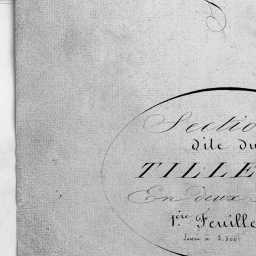 Section
dite du
TILLE
En deux
1.ère Feuille